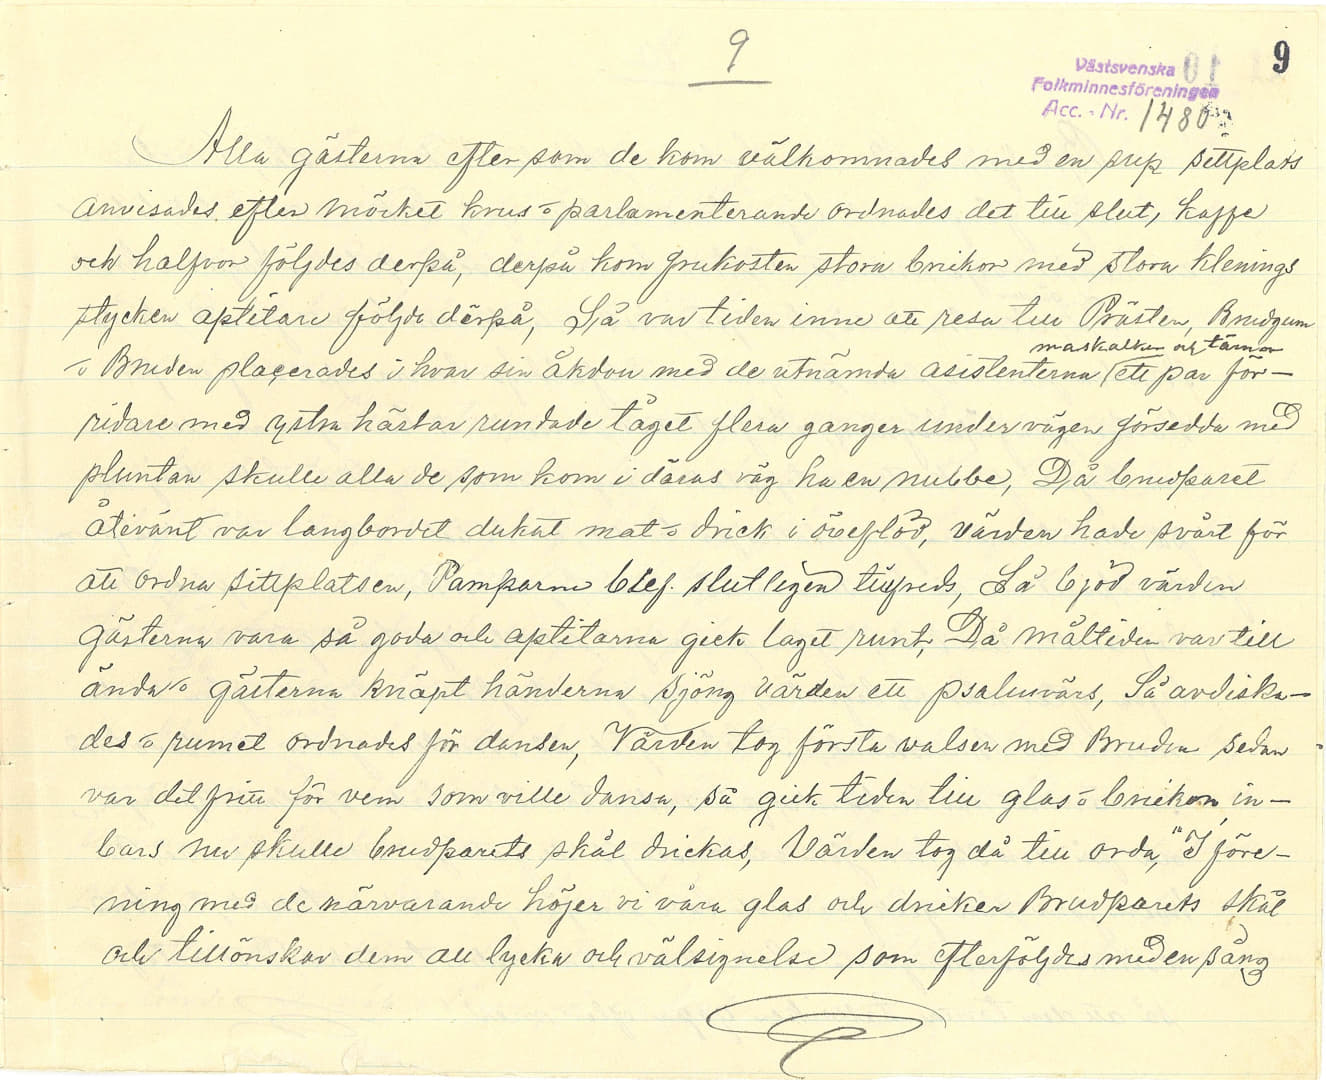 9
9
Västsvenska
Folkminnesföreningen
Acc. - Nr. 1480
Alla gästerna efter som de kom välkomnades med en sup sittplats
anvisades efter möcket krus o parlamenterande ordnades det till slut, kaffe
och halfvor följdes derpå, derpå kom frukosten stora brickor med stora klenings
stycken aptitare följde därpå, Så var tiden inne att resa till Prästen, Brudgum
maskalker och tärnor
o Bruden plaçerades i hvar sin åkdon med de utnämda asistenterna ett par för-
ridare med ystra hästar rundade tåget flera ganger under vägen försedda med
pluntan skulle alla de som kom i däras väg ha en nubbe, Då brudparet
återvänt var langbordet dukat mat o drick i öveflöd, Värden hade svårt för
att ordna sittplatsen, Pamparne blef. slutligen tillfreds, Så bjöd värden
Gästerna vara så goda och aptitarna gick laget runt, Då måltiden var till
ända o gästerna knäpt händerna sjöng värden ett psalmvärs, Så avdiska-
des o rumet ordnades för dansen, Värden tog första valsen med Bruden sedan
var det fritt för vem som ville dansa, så gick tiden till glas o brickor in-
bars nu skulle brudparets skål drickas, Värden tog då till orda, "I före-
ning med de närvarande höjer vi våra glas och dricker Brudparets skål
och tillönskar dem all lycka och välsignelse som efterföljdes med en sång